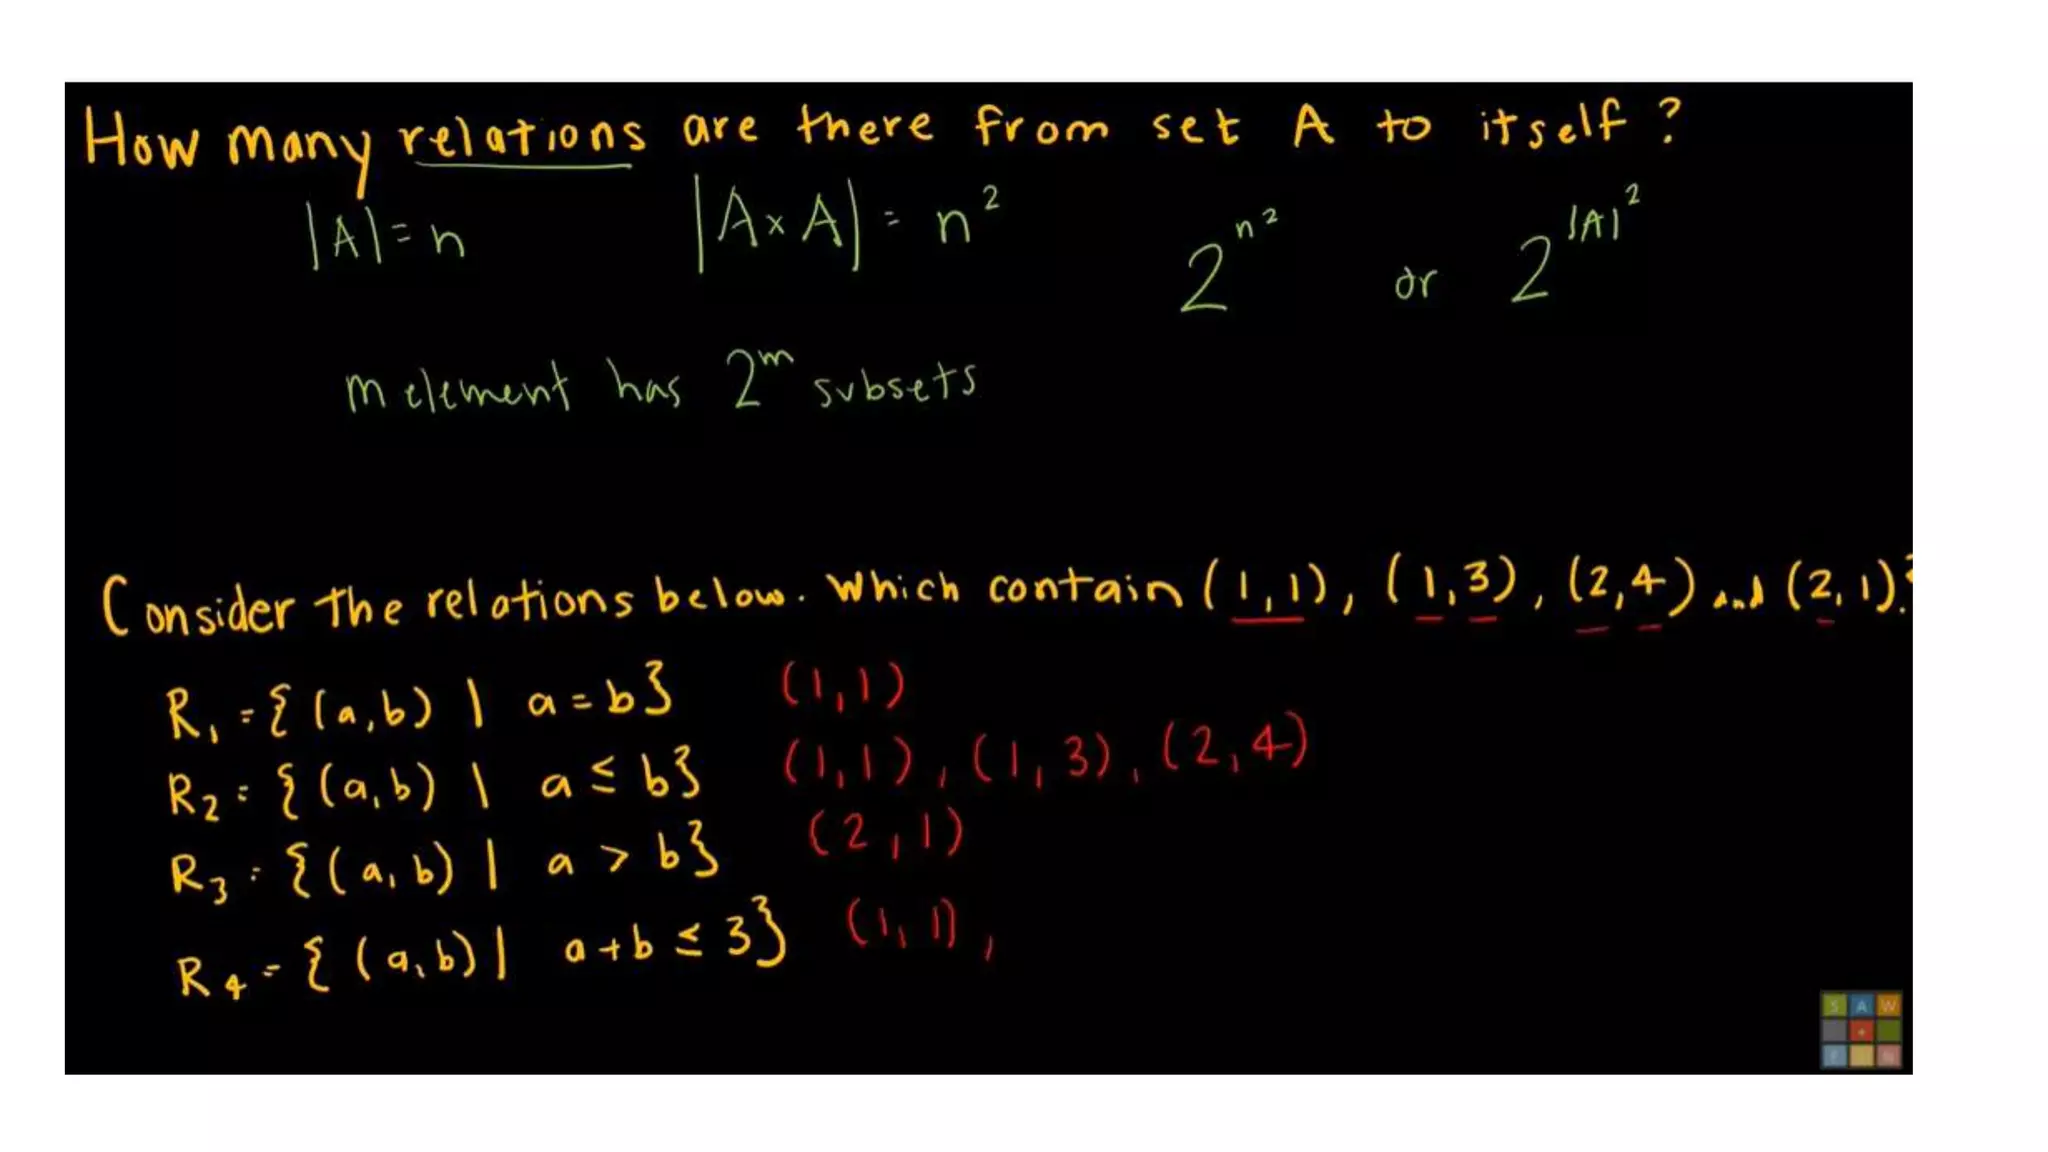 How many relations are there from set A to itself?
|A| = n |A×A| = n² 2^n² or 2^|A|²
m element has 2^m subsets
Consider the relations below. Which contain (1,1), (1,3), (2,4) and (2,1)?
R₁ = {(a,b) | a = b} (1,1)
R₂ = {(a,b) | a ≤ b} (1,1), (1,3), (2,4)
R₃ = {(a,b) | a > b} (2,1)
R₄ = {(a,b) | a+b ≤ 3} (1,1),
S A W